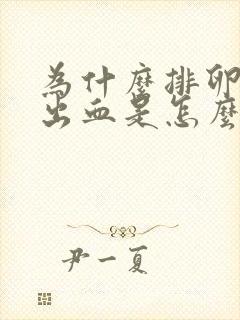 為什麼排卵
出血是怎麼
尹一夏